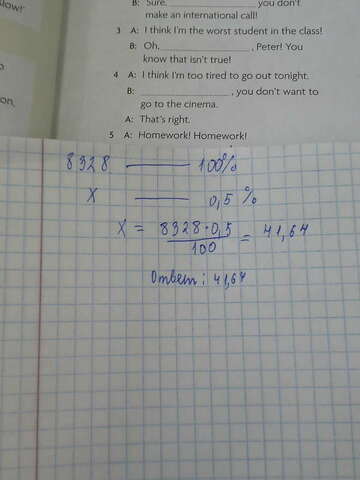 low!'
B: Sure, ____ you don't
make an international call!
3 A: I think I'm the worst student in the class!
B: Oh, ____, Peter! You
know that isn't true!
4 A: I think I'm too tired to go out tonight.
B: ____, you don't want to
go to the cinema.
A: That's right.
on,
5 A: Homework! Homework!
8328 — 100%
X — 0,5 %
X = 8328·0,5 / 100 = 41,64
Ответ: 41,64